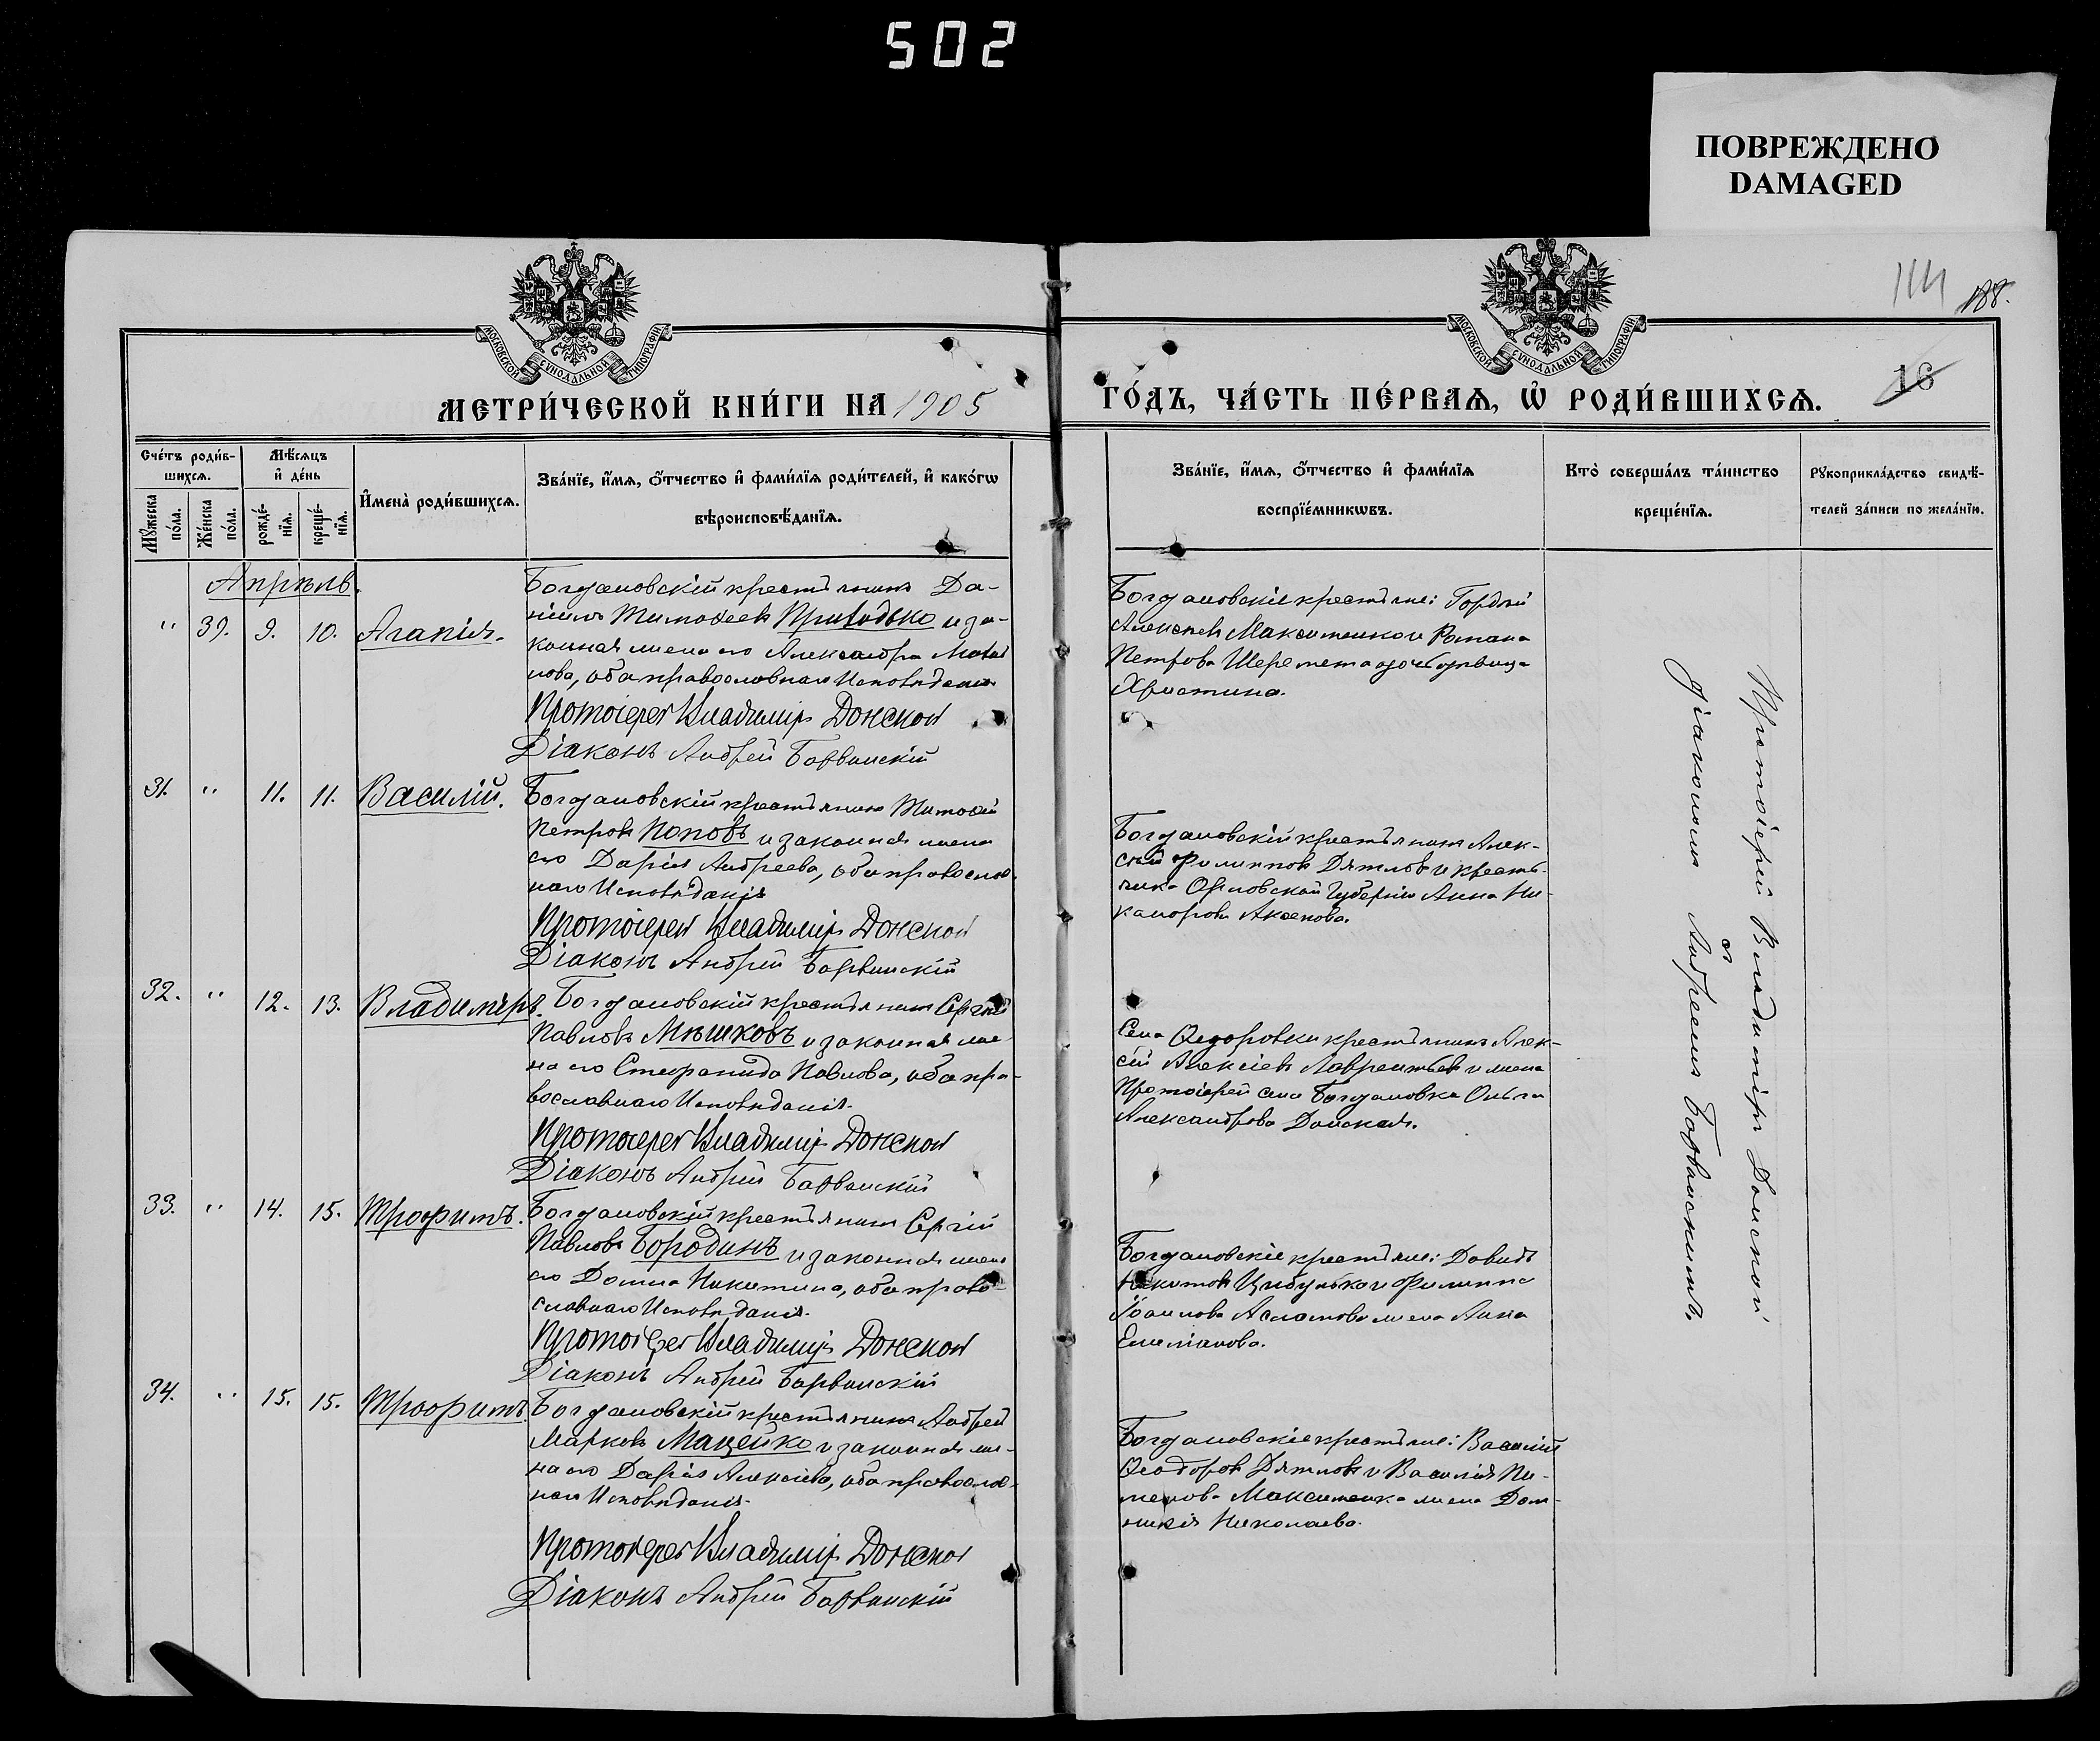 502
ПОВРЕЖДЕНО
DAMAGED
188.
16
МОСКОВСКОЙ СѴНОДАЛЬНОЙ ТИПОГРАФІИ
МОСКОВСКОЙ СѴНОДАЛЬНОЙ ТИПОГРАФІИ
МЕТРИ́ЧЕСКОЙ КНИ́ГИ НА 1905
ГО́ДЪ, ЧА́СТЬ ПЕ́РВАѦ, Ѡ҆ РОДИ́ВШИХСѦ.
Сче́тъ роди́в-
шихсѧ.
Мꙋ́жеска по́ла.
Же́нска по́ла.
Мѣ́сѧцъ
и҆ де́нь
рожде́-
нїѧ.
креще́-
нїѧ.
И҆мена̀ роди́вшихсѧ.
Зва́нїе, и҆́мѧ, ѻ҆́тчество и҆ фами́лїѧ роди́телей, и҆ како́гѡ
вѣроисповѣ́данїѧ.
Зва́нїе, и҆́мѧ, ѻ҆́тчество и҆ фами́лїѧ
воспрїе́мникѡвъ.
Кто̀ соверша́лъ та́инство
креще́нїѧ.
Рꙋкоприкла́дство свидѣ́-
телей за́писи по жела́нїю.
Апрѣль.
" 39. 9. 10. Агапія.
Богдановскій крестьянинъ Да-
ніилъ Тимоѳеевъ Приходько и за-
конная жена его Александра
нова, оба православнаго Исповѣданія
Протоіерей Владиміръ Донской
Діаконъ Андрей Барвинскій
Богдановскіе крестьяне: Гордій
Алексѣевъ Максименко и Романа
Петрова Шеремета дочь дѣвица
Христина.
31. " 11. 11. Василій.
Богдановскій крестьянинъ Тимоѳей
Петровъ Поповъ и законная жена
его Дарія Андреева, оба православ-
наго Исповѣданія
Протоіерей Владиміръ Донской
Діаконъ Андрей Барвинскій
Богдановскій крестьянинъ Алек-
сѣй Филипповъ Дятловъ и крестьян-
ка Орловской Губерніи Анна Ни-
канорова Аксенова.
32. " 12. 13. Владиміръ.
Богдановскій крестьянинъ Сергѣй
Павловъ Мѣшковъ и законная же-
на его Стефанида Павлова, оба пра-
вославнаго Исповѣданія.
Протоіерей Владиміръ Донской
Діаконъ Андрей Барвинскій
Села Ѳедоровки крестьянинъ Алек-
сѣй Алексѣевъ Лаврентьевъ и жена
Протоіерея села Богдановка Ольга
Александрова Донская.
33. " 14. 15. Трофимъ.
Богдановскій крестьянинъ Сергій
Павловъ Бородинъ и законная жена
его Домна Никитина, оба право-
славнаго Исповѣданія.
Протоіерей Владиміръ Донской
Діаконъ Андрей Барвинскій
Богдановскіе крестьяне: Давидъ
Никитовъ Цыбулька и Филиппа
Іоаннова Асламова жена Анна
Емеліанова.
34. " 15. 15. Трофимъ.
Богдановскій крестьянинъ Андрей
Марковъ Мацейко и законная же-
на его Дарія Алексіева, оба православ-
наго Исповѣданія.
Протоіерей Владиміръ Донской
Діаконъ Андрей Барвинскій
Богдановскіе крестьяне: Василій
Ѳеодоровъ Дятловъ и Василія Пи-
менова Максименка жена Дом-
никія Николаева.
Протоіерей Владиміръ Донской
съ
Діакономъ Андреемъ Барвинскимъ.